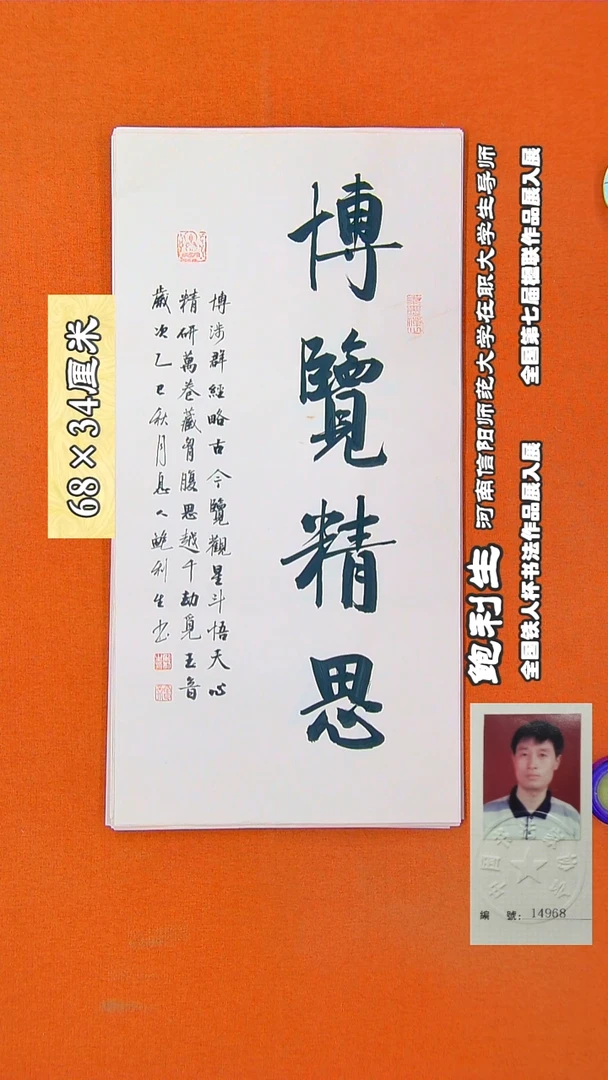 全国第七届楹联作品展入展
全国铁人杯书法作品展入展
河南信阳师范大学在职大学生导师
鲍利生
博覽精思
博涉群經略古今覽觀星斗悟天心
精研萬卷藏胷腹思越千劫覓玉音
歲次乙巳秋月息人鮑利生书
68×34厘米
編 號: 14968